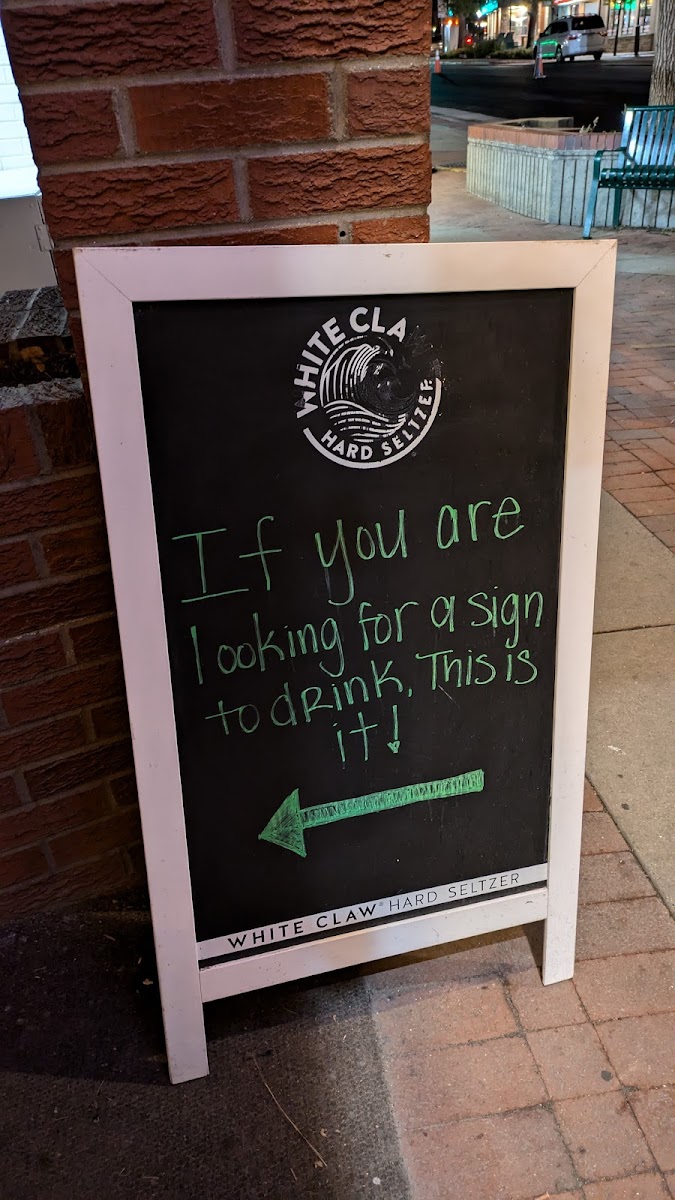 WHITE CLA
HARD SELTZER
If you are
looking for a sign
to drink. This is
it!
WHITE CLAW® HARD SELTZER